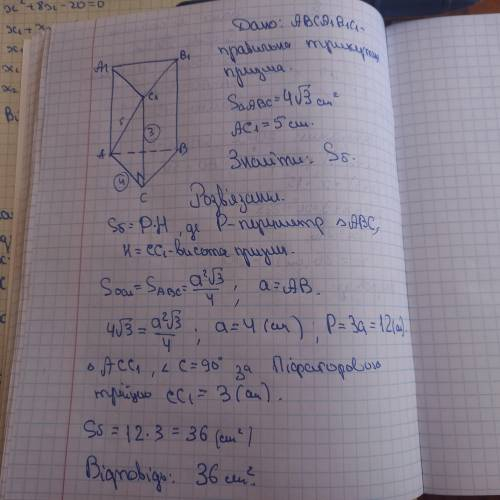 x² + 8x - 20 = 0
x₁ + x
x₁
x₂
Ві
Дано: ABCA₁B₁C₁-
правильна трикутна
призма.
S△ABC = 4√3 см²
AC₁ = 5 см.
Знайти: Sб.
A₁
B₁
C₁
5
3
A
B
4
C
Розв'язання.
Sб = P·H, де P - периметр △ABC,
H = CC₁ - висота призми.
Sосн = SABC = a²√3/4 ; a = AB.
4√3 = a²√3/4 ; a = 4 (см) ; P = 3a = 12 (см).
△ ACC₁, ∠C = 90° за Піфагоровою
трійкою CC₁ = 3 (см).
Sб = 12 · 3 = 36 (см²)
Відповідь: 36 см².